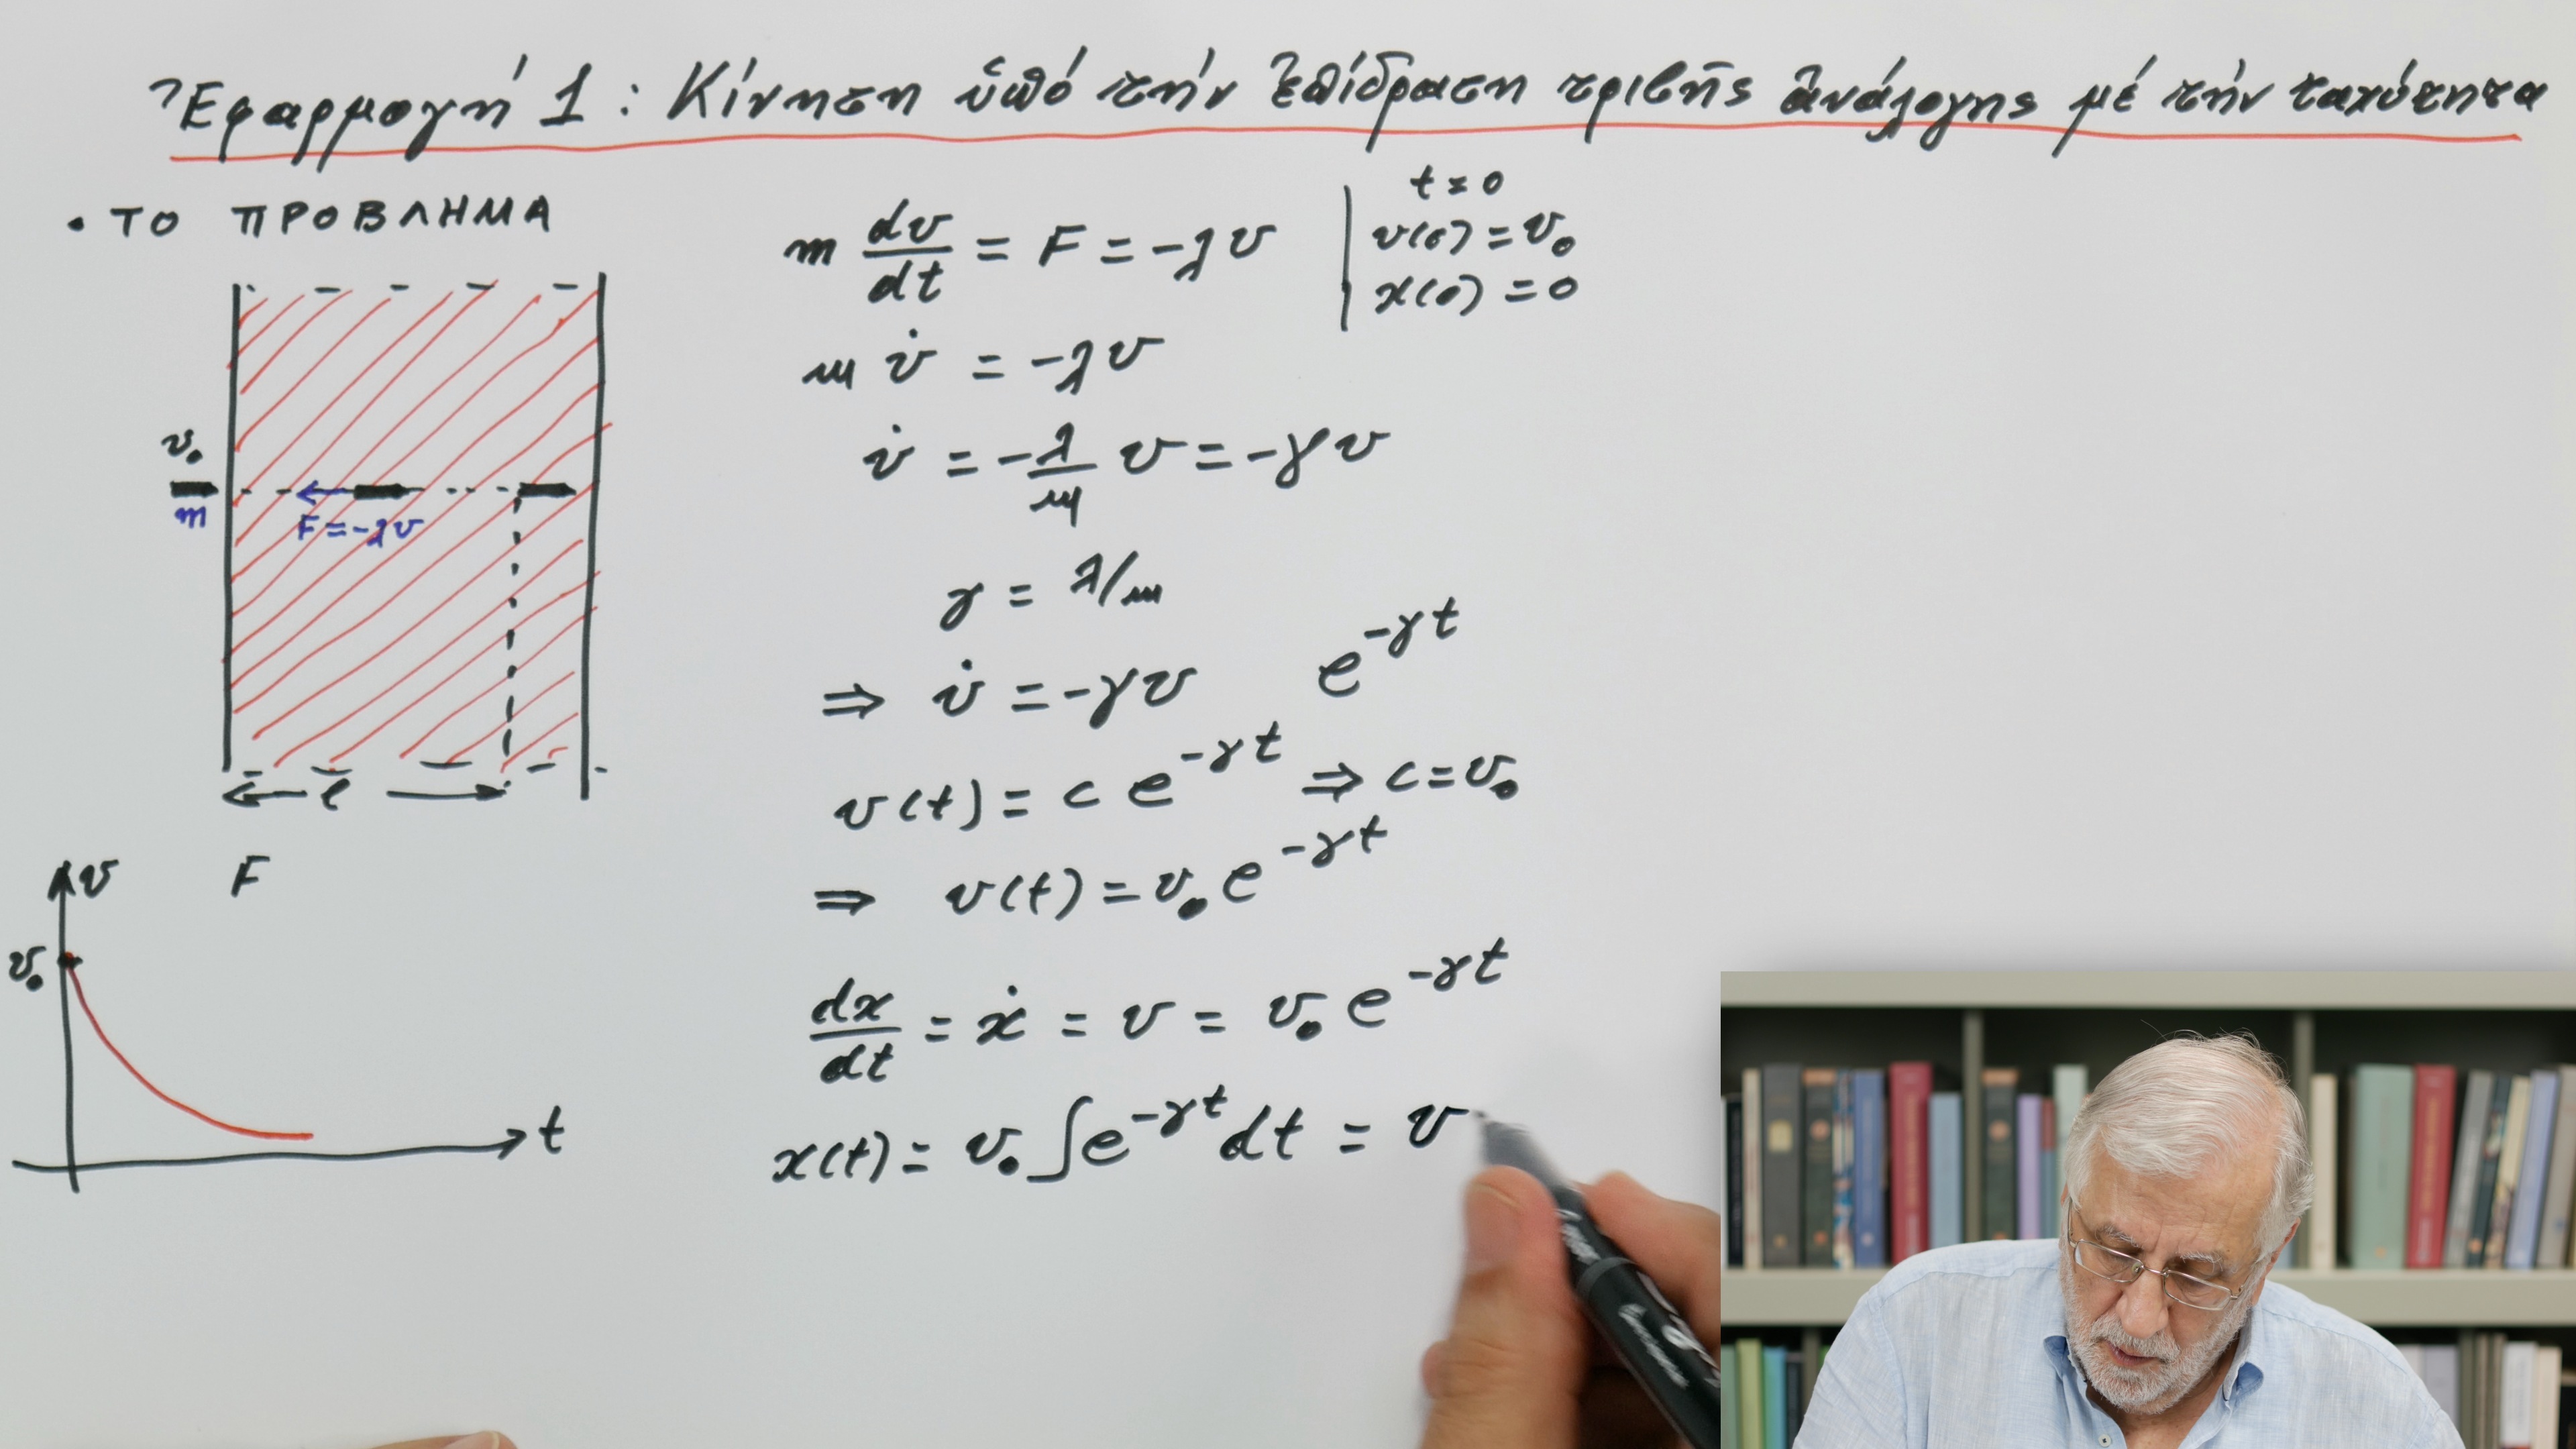 Ἐφαρμογή 1 : Κίνηση ὑπό τήν ἐπίδραση τριβῆς ἀνάλογης μέ τήν ταχύτητα
• ΤΟ ΠΡΟΒΛΗΜΑ
v₀
m
F = -λv
ℓ
v F
v₀
t
m dv/dt = F = -λv
t = 0
v(0) = v₀
x(0) = 0
m v̇ = -λv
v̇ = -λ/m v = -γv
γ = λ/m
⇒ v̇ = -γv e^{-γt}
v(t) = c e^{-γt} ⇒ c = v₀
⇒ v(t) = v₀ e^{-γt}
dx/dt = ẋ = v = v₀ e^{-γt}
x(t) = v₀ ∫e^{-γt} dt = v